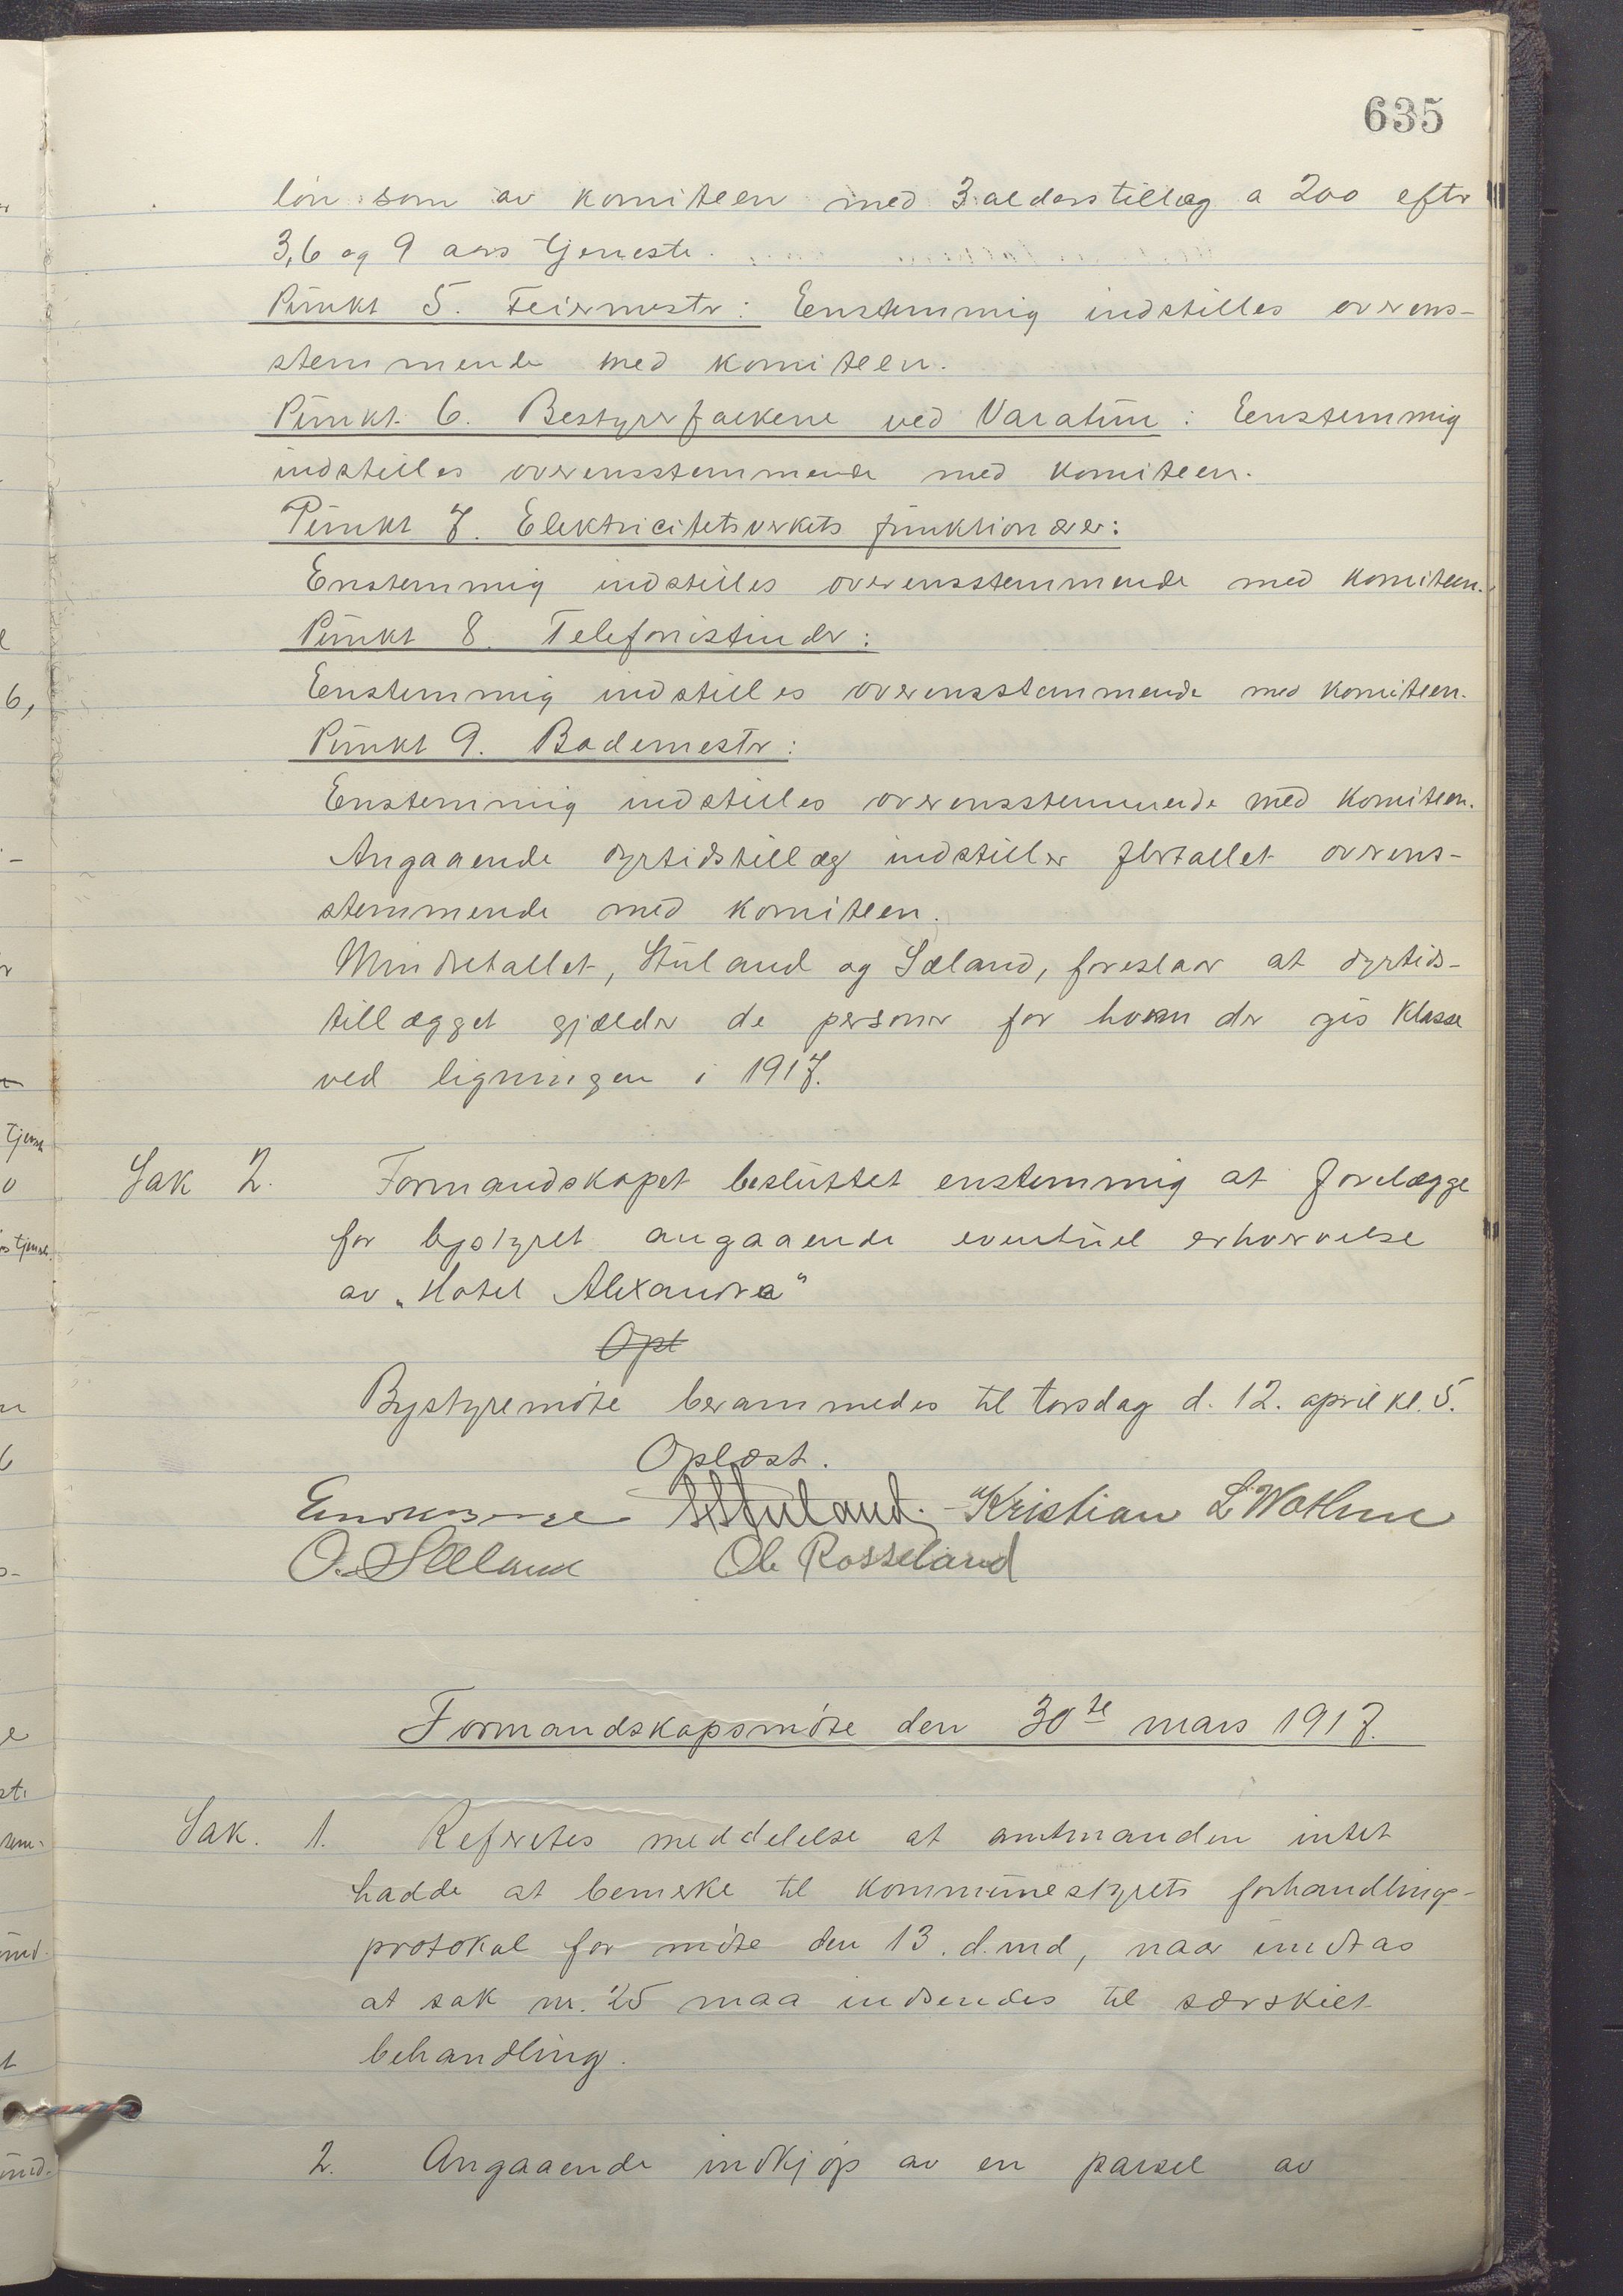 635
løn som av komiteen med 3 alderstillæg a 200 efter
3, 6 og 9 aars tjeneste.
Punkt 5. Feiermester: Eenstemmig indstilles overens-
stemmende med komiteen.
Punkt 6. Bestyrerfolkene ved Varatun: Eenstemmig
indstilles overensstemmende med komiteen.
Punkt 7. Elektricitetsverkets funktionærer:
Enstemmig indstilles overensstemmende med komiteen.
Punkt 8. Telefonistinder:
Enstemmig indstilles overensstemmende med komiteen.
Punkt 9. Bademester:
Enstemmig indstilles overensstemmende med komiteen.
Angaaende dyrtidstillæg indstiller flertallet overens-
stemmende med komiteen.
Mindretallet, Stuland og Sæland, foreslaar at dyrtids-
tillægget gjælder de personer for hvem der gis klasse
ved ligningen i 1917.
Sak 2. Formandskapet besluttet enstemmig at forelægge
for bystyret angaaende eventuel erhvervelse
av „Hotel Alexandra"
Opl
Bystyremøte berammedes til torsdag d. 12. april kl. 5.
Oplæst.
Stuland. Kristian L. Wathne
O. Sæland Ole Rosseland
Formandskapsmøte den 30te mars 1917.
Sak. 1. Refertes meddelelse at amtmanden intet
hadde at bemerke til kommunestyrets forhandlings-
protokol for møte den 13. d. md, naar undtas
at sak nr. 25 maa indsendes til særskilt
behandling.
2. Angaaende indkjøp av en parsel av